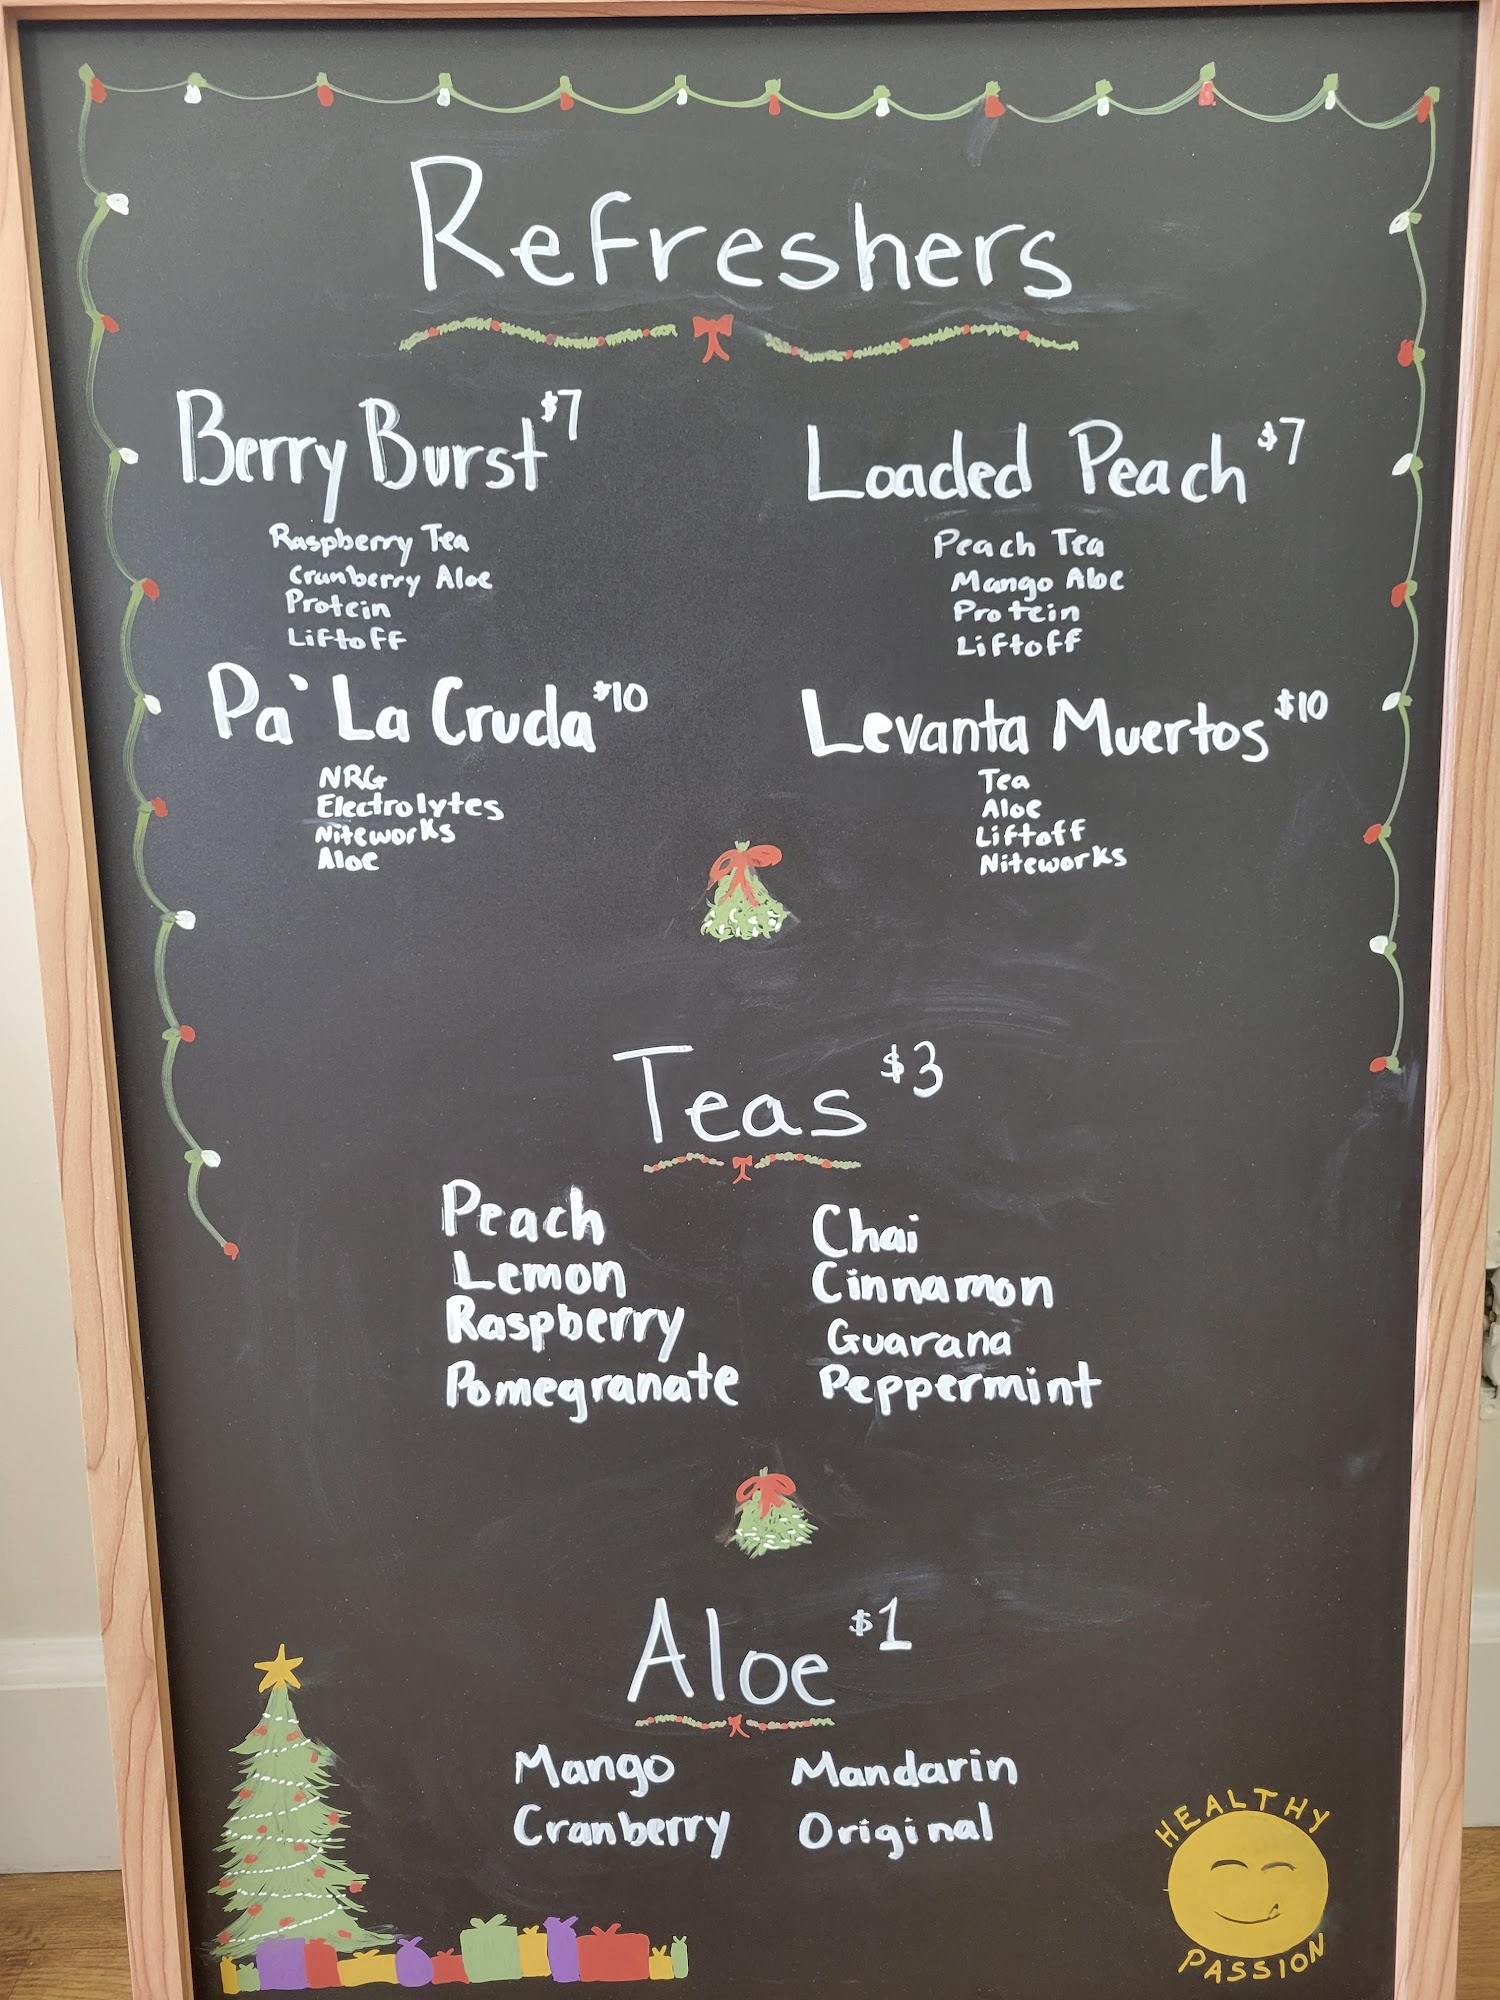 Refreshers
Berry Burst $7
Raspberry Tea
Cranberry Aloe
Protein
Liftoff
Loaded Peach $7
Peach Tea
Mango Aloe
Protein
Liftoff
Pa` La Cruda $10
NRG
Electrolytes
Niteworks
Aloe
Levanta Muertos $10
Tea
Aloe
Liftoff
Niteworks
Teas $3
Peach
Lemon
Raspberry
Pomegranate
Chai
Cinnamon
Guarana
Peppermint
Aloe $1
Mango
Cranberry
Mandarin
Original
HEALTHY
PASSION